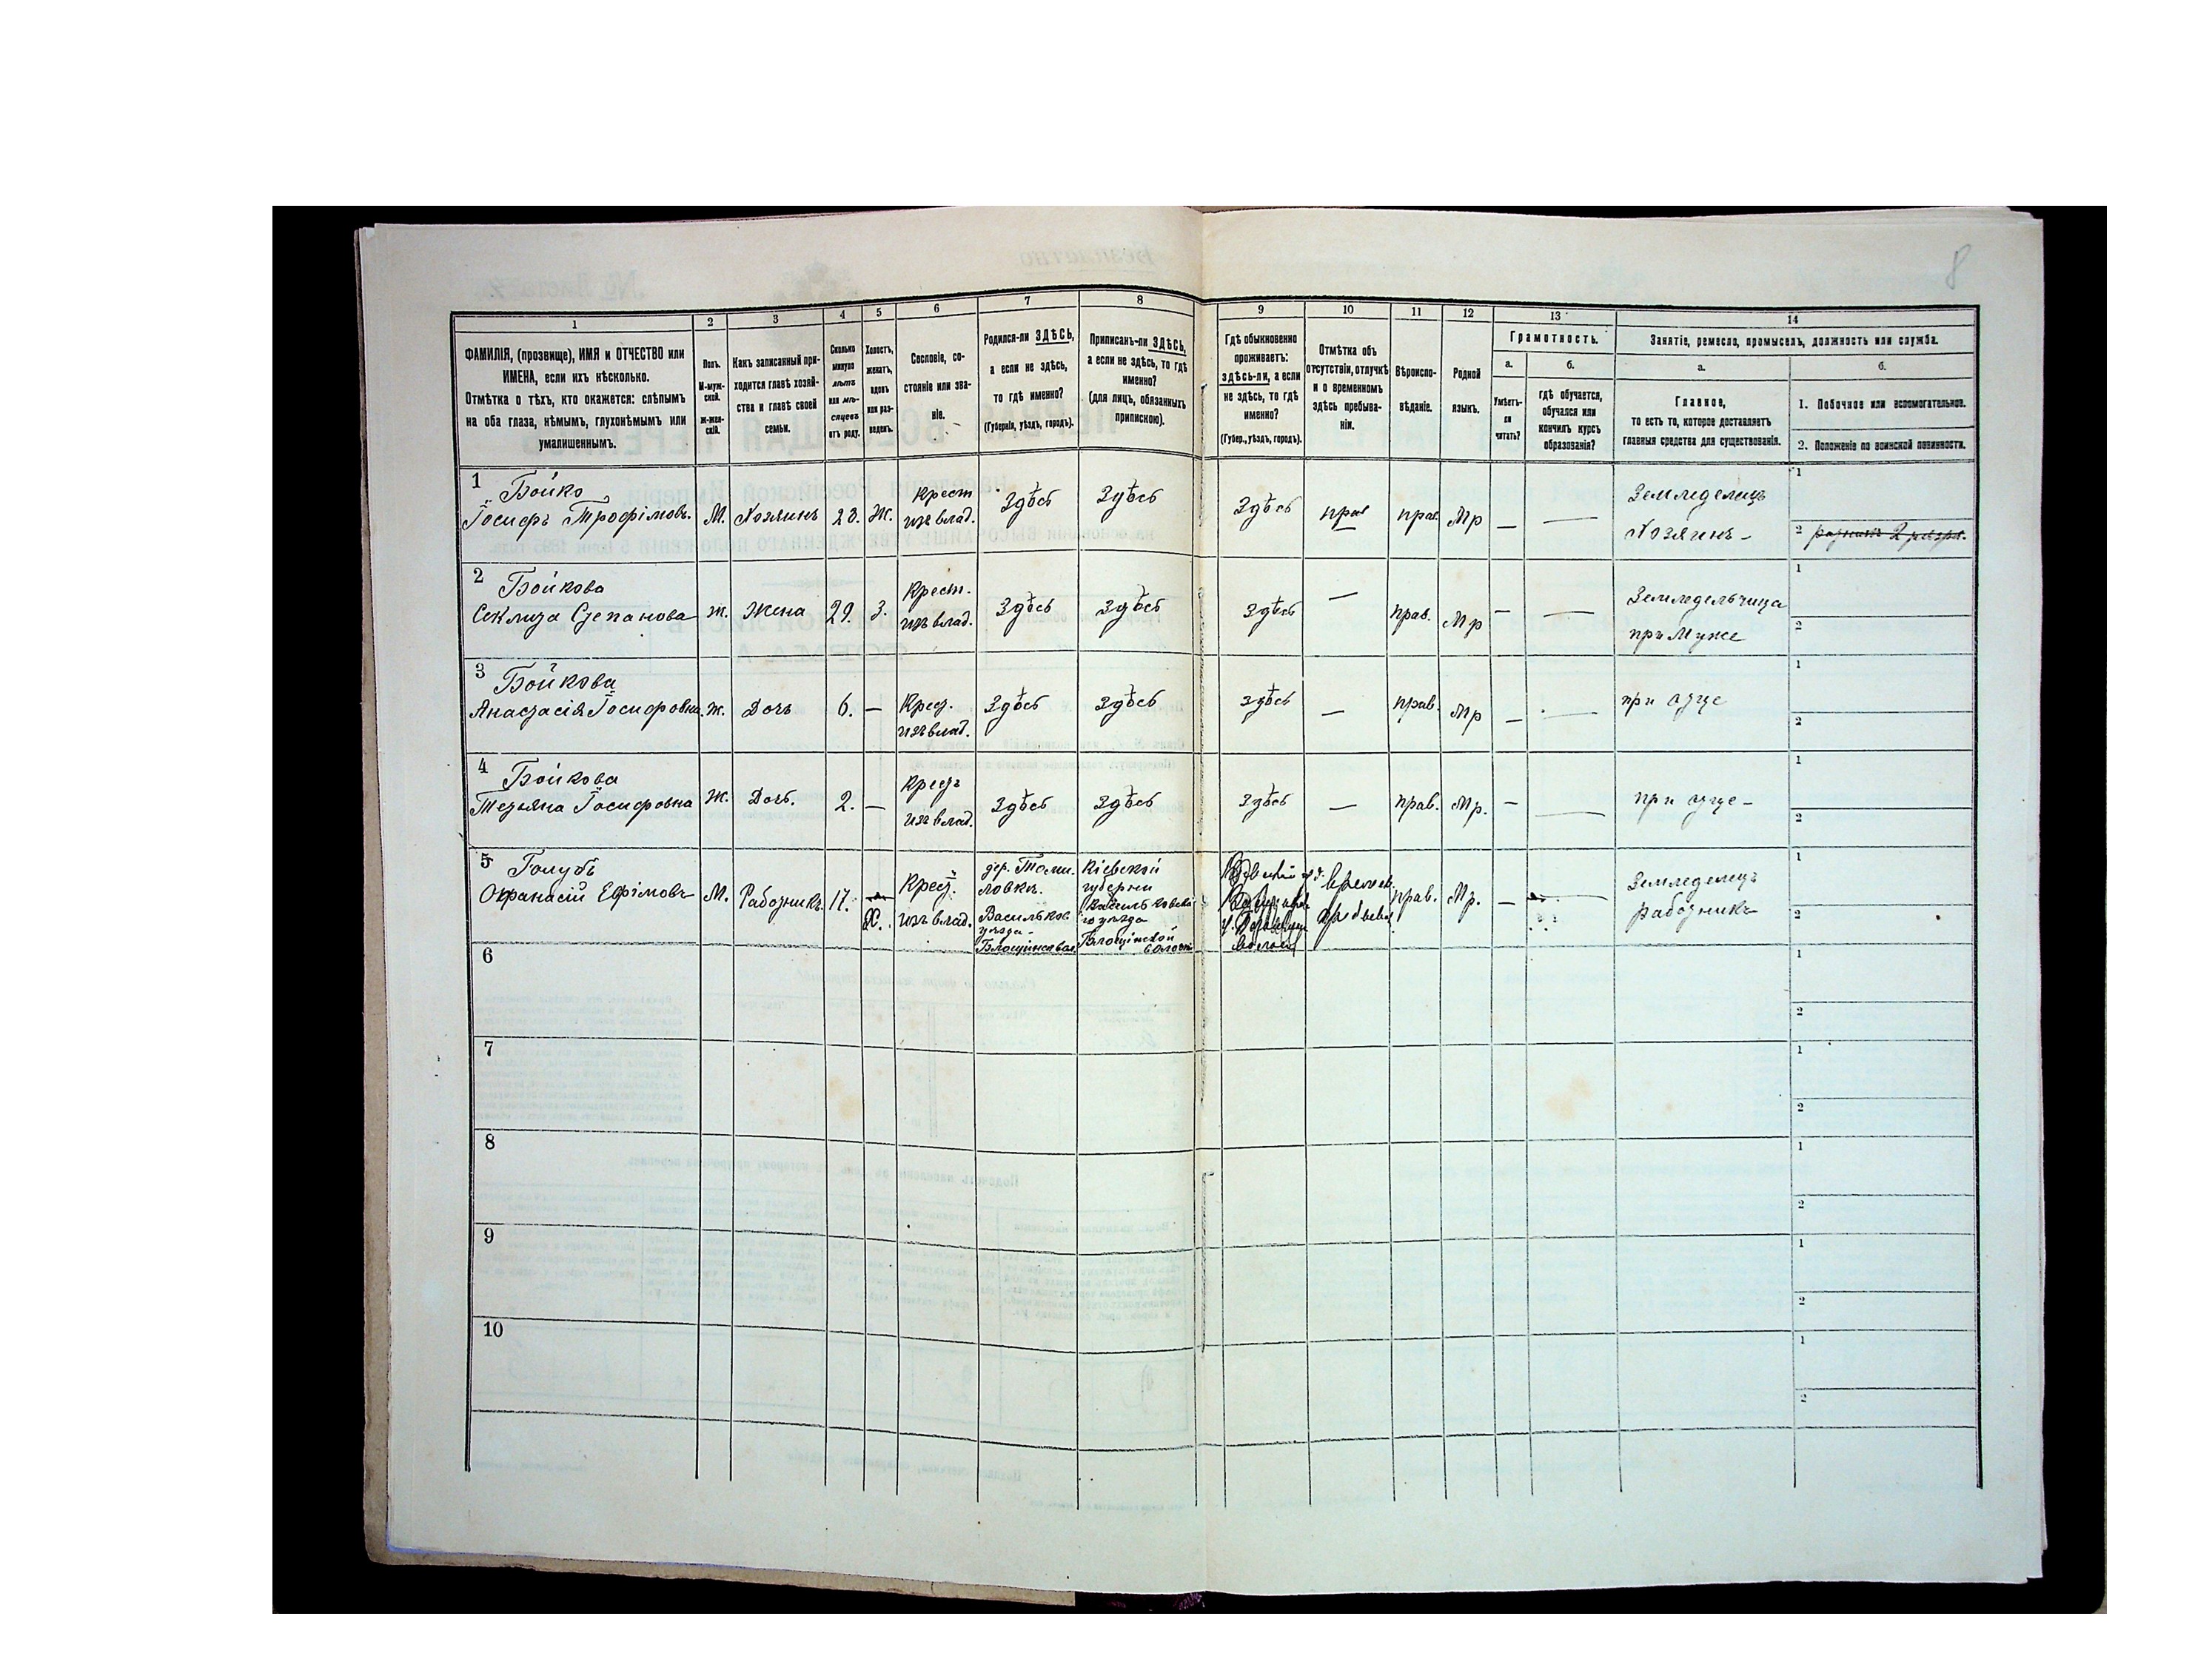 8
1
2
3
4
5
6
7
8
9
10
11
12
13
14
ФАМИЛІЯ, (прозвище), ИМЯ и ОТЧЕСТВО или
ИМЕНА, если ихъ нѣсколько.
Отмѣтка о тѣхъ, кто окажется: слѣпымъ
на оба глаза, нѣмымъ, глухонѣмымъ или
умалишеннымъ.
Полъ.
М-муж-
ской.
Ж-жен-
скій.
Какъ записанный при-
ходится главѣ хозяй-
ства и главѣ своей
семьи.
Сколько
минуло
лѣтъ
или мѣ-
сяцевъ
отъ роду.
Холостъ,
женатъ,
вдовъ
или раз-
веденъ.
Сословіе, со-
стояніе или зва-
ніе.
Родился-ли ЗДѢСЬ,
а если не здѣсь,
то гдѣ именно?
(Губернія, уѣздъ, городъ).
Приписанъ-ли ЗДѢСЬ,
а если не здѣсь, то гдѣ
именно?
(для лицъ, обязанныхъ
припискою).
Гдѣ обыкновенно
проживаетъ:
здѣсь-ли, а если
не здѣсь, то гдѣ
именно?
(Губер., уѣздъ, городъ).
Отмѣтка объ
отсутствіи, отлучкѣ
и о временномъ
здѣсь пребыва-
ніи.
Вѣроиспо-
вѣданіе.
Родной
языкъ.
Грамотность.
а.
Умѣетъ-
ли
читать?
б.
гдѣ обучается,
обучался или
кончилъ курсъ
образованія?
Занятіе, ремесло, промыселъ, должность или служба.
а.
Главное,
то есть то, которое доставляетъ
главныя средства для существованія.
б.
1. Побочное или вспомогательное.
2. Положеніе по воинской повинности.
1
Бойко
Іосифъ Трофімовъ.
М.
Хозяинъ
28.
Ж.
Крест
изъ влад.
Здѣсь
Здѣсь
Здѣсь
прав
Мр
—
—
Земледелецъ
Хозяинъ –
1
2
2
Бойкова
Степанова
Ж.
Жена
29.
З.
Крест.
изъ влад.
Здѣсь
Здѣсь
Здѣсь
—
прав.
Мр
—
—
Земледельчица
при Муже
1
2
3
Бойкова
Анастасія Іосифовна
Ж.
Дочь
6.
—
Крест.
изъ влад.
Здѣсь
Здѣсь
Здѣсь
—
прав.
Мр
—
—
при отце
1
2
4
Бойкова
Тетяна Іосифовна
Ж.
Дочь.
2.
—
Крестъ
изъ влад.
Здѣсь
Здѣсь
Здѣсь
—
прав.
Мр.
—
—
при отце –
1
2
5
Голубъ
Офанасій Ефімовъ
М.
Работникъ
17.
Х.
Крест.
изъ влад.
дер. Томи-
ловки.
Васильков.
уѣзда
Кіевской
губерни
уѣзда
прав.
Мр.
—
Земледелецъ
работникъ
1
2
6
1
2
7
1
2
8
1
2
9
1
2
10
1
2